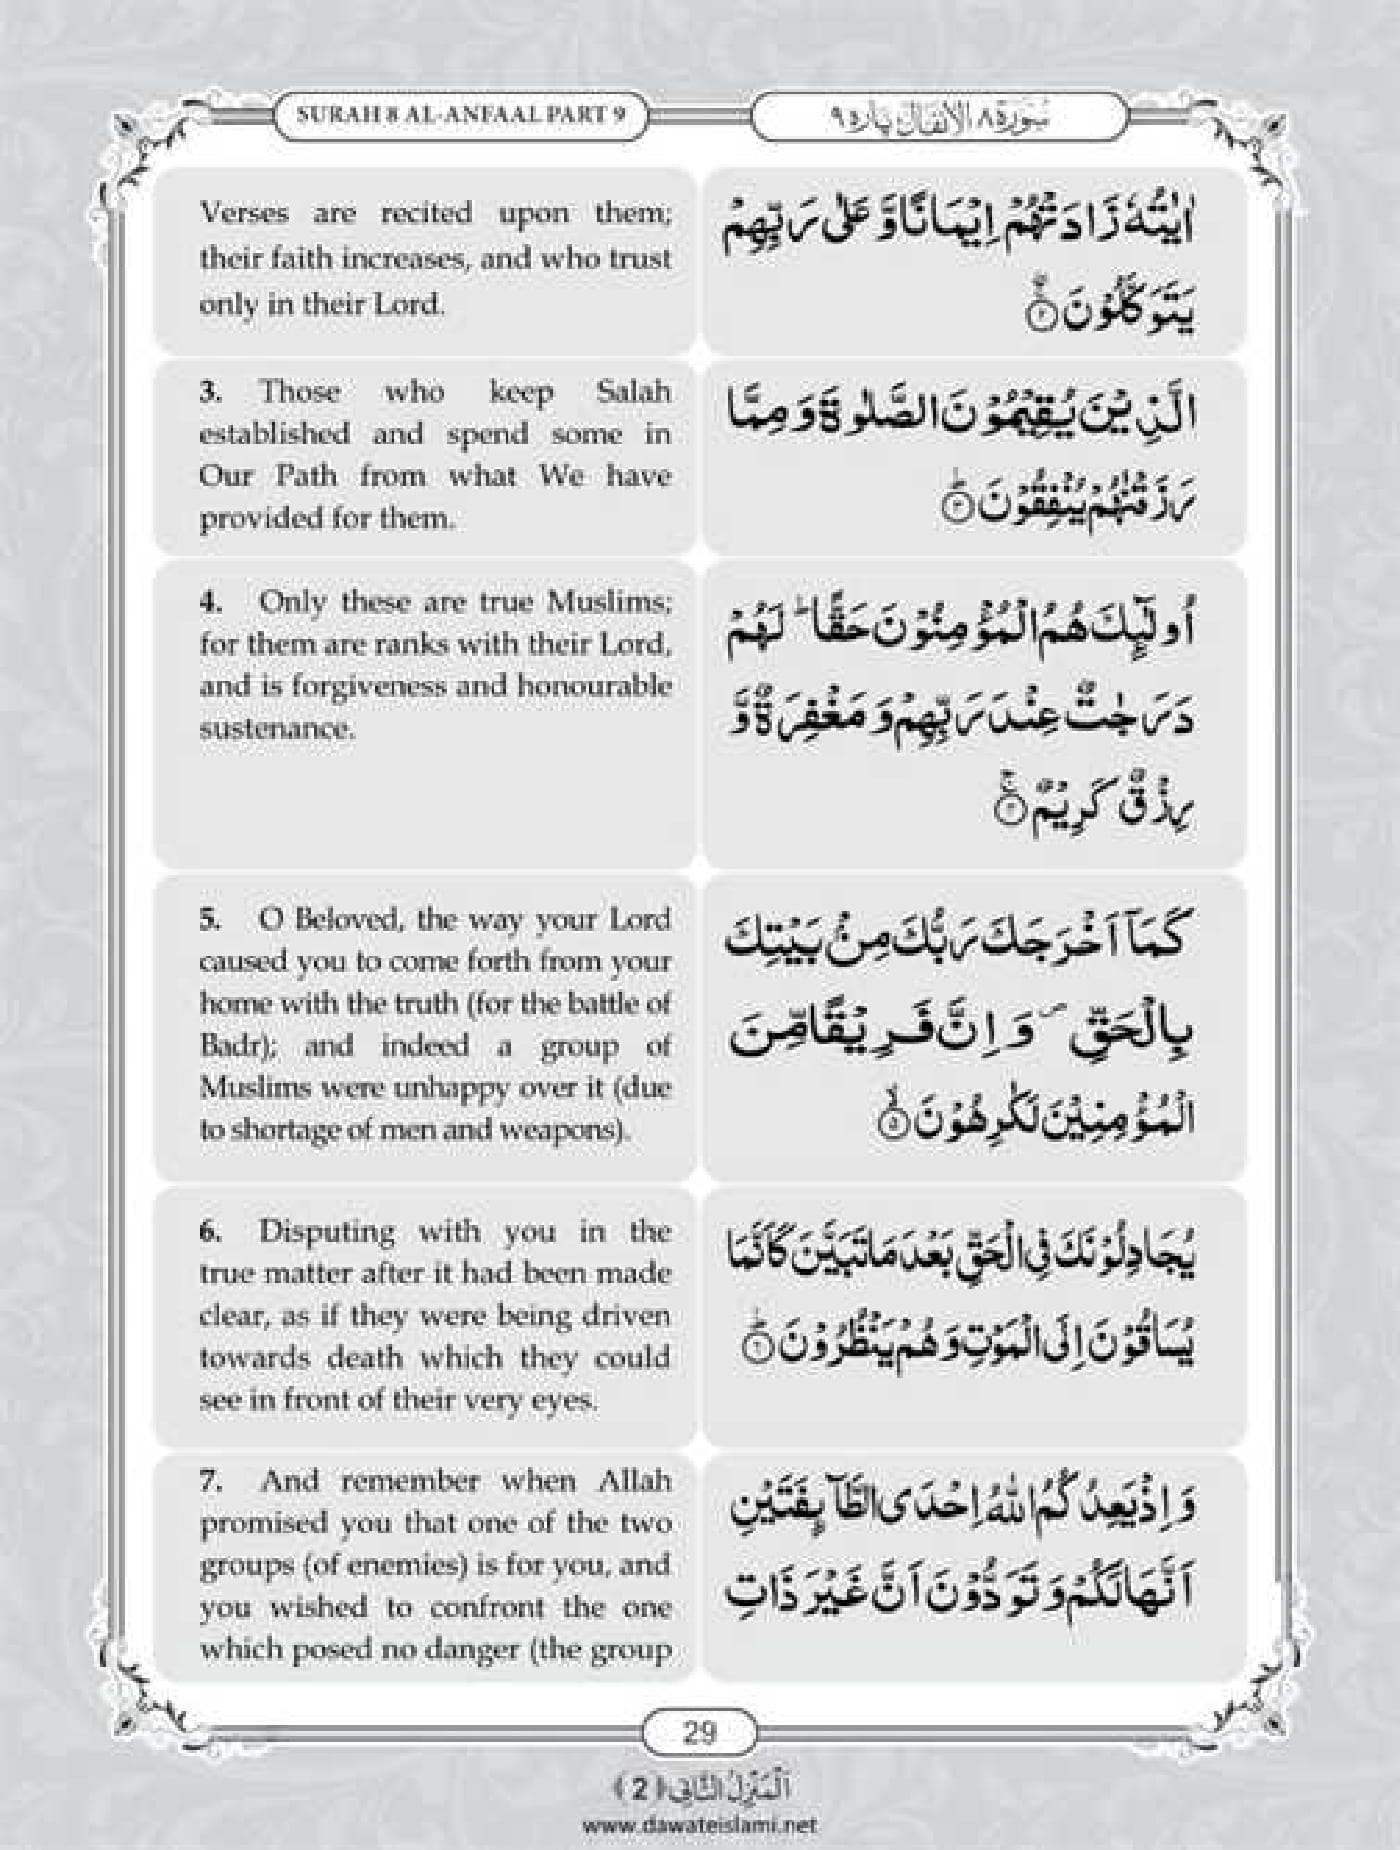 SURAH 8 AL-ANFAAL PART 9
سُوْرَة ٨ الْاَنْفَال پاره ٩
Verses are recited upon them;
their faith increases, and who trust
only in their Lord.
اٰيٰتُهٗ زَادَتْهُمْ اِيْمَانًا وَّ عَلٰى رَبِّهِمْ
يَتَوَكَّلُوْنَ ۚۖ ﴿۲﴾
3. Those who keep Salah
established and spend some in
Our Path from what We have
provided for them.
الَّذِيْنَ يُقِيْمُوْنَ الصَّلٰوةَ وَ مِمَّا
رَزَقْنٰهُمْ يُنْفِقُوْنَ ؕ ﴿۳﴾
4. Only these are true Muslims;
for them are ranks with their Lord,
and is forgiveness and honourable
sustenance.
اُولٰٓىِٕكَ هُمُ الْمُؤْمِنُوْنَ حَقًّا ؕ لَهُمْ
دَرَجٰتٌ عِنْدَ رَبِّهِمْ وَ مَغْفِرَةٌ وَّ
رِزْقٌ كَرِيْمٌ ۚ ﴿۴﴾
5. O Beloved, the way your Lord
caused you to come forth from your
home with the truth (for the battle of
Badr); and indeed a group of
Muslims were unhappy over it (due
to shortage of men and weapons).
كَمَاۤ اَخْرَجَكَ رَبُّكَ مِنْۢ بَيْتِكَ
بِالْحَقِّ ۪ وَ اِنَّ فَرِيْقًا مِّنَ
الْمُؤْمِنِيْنَ لَكٰرِهُوْنَ ۙ ﴿۵﴾
6. Disputing with you in the
true matter after it had been made
clear, as if they were being driven
towards death which they could
see in front of their very eyes.
يُجَادِلُوْنَكَ فِى الْحَقِّ بَعْدَ مَا تَبَيَّنَ كَاَنَّمَا
يُسَاقُوْنَ اِلَى الْمَوْتِ وَ هُمْ يَنْظُرُوْنَ ؕ ﴿۶﴾
7. And remember when Allah
promised you that one of the two
groups (of enemies) is for you, and
you wished to confront the one
which posed no danger (the group
وَ اِذْ يَعِدُكُمُ اللّٰهُ اِحْدَى الطَّآىِٕفَتَيْنِ
اَنَّهَا لَكُمْ وَ تَوَدُّوْنَ اَنَّ غَيْرَ ذَاتِ
29
اَلْمَنْزِلُ الثَّانِى ﴿2﴾
www.dawateislami.net